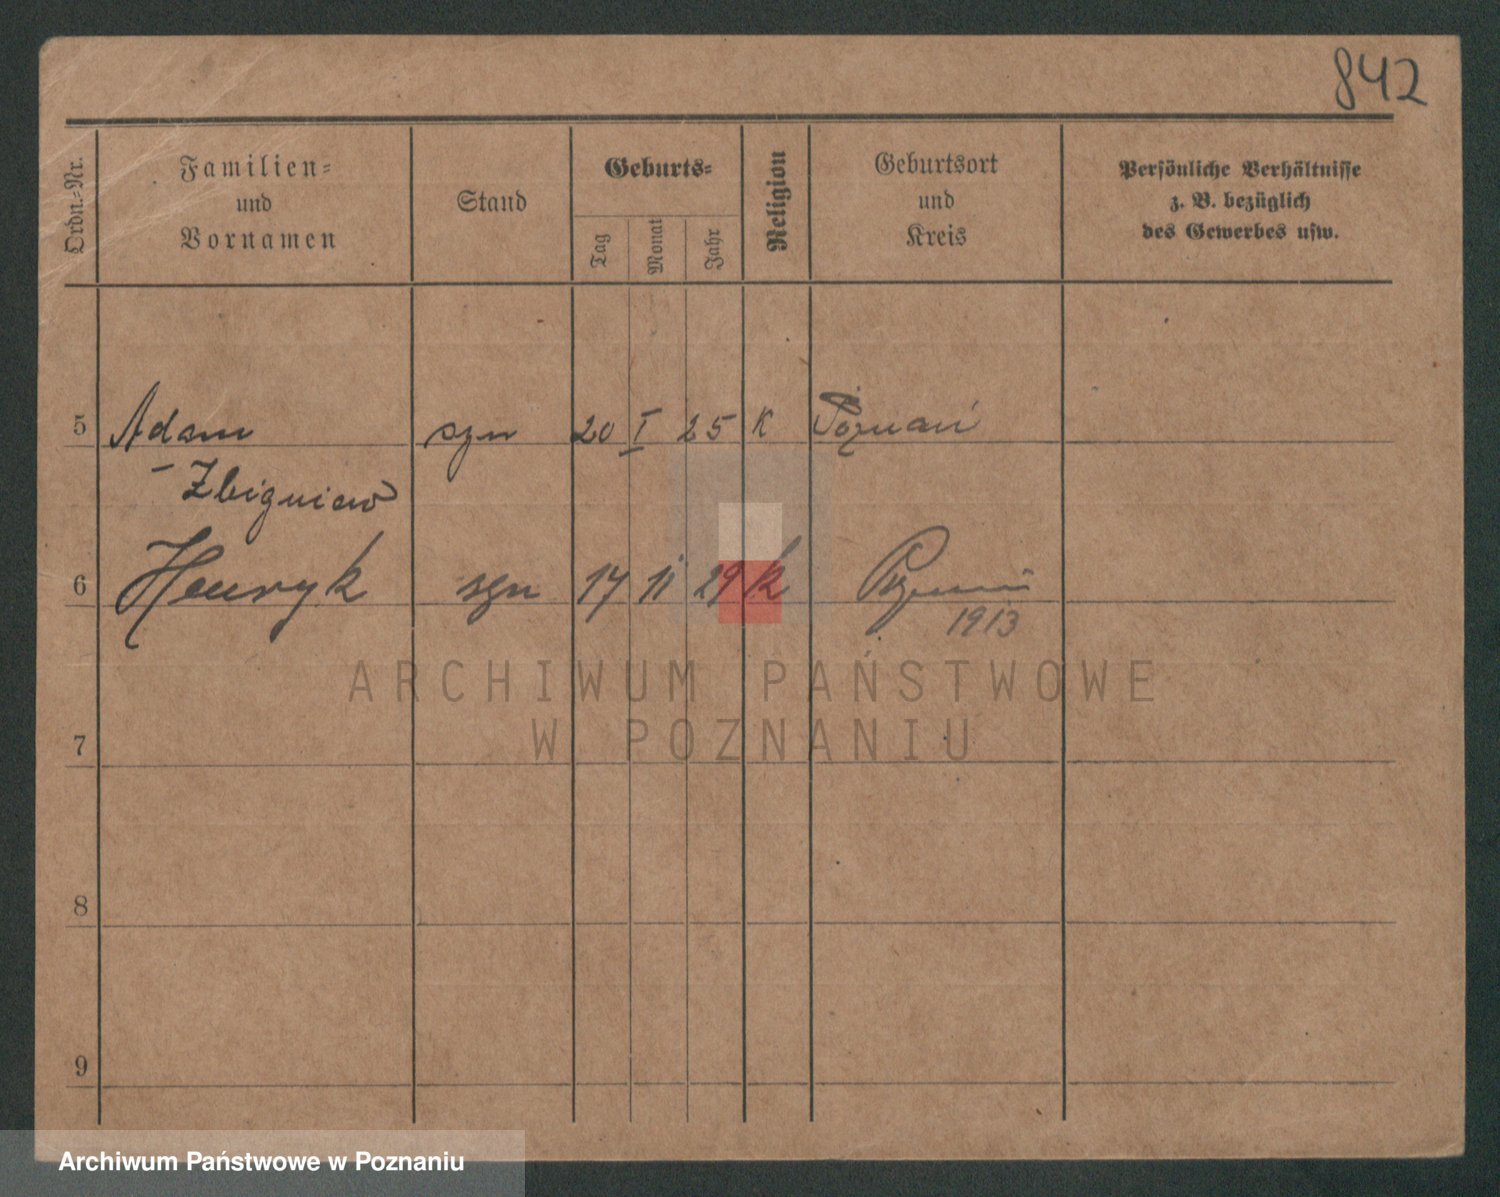 842
Ordn.-Nr.
Familien-
und
Vornamen
Stand
Geburts-
Tag
Monat
Jahr
Religion
Geburtsort
und
Kreis
Persönliche Verhältnisse
z. B. bezüglich
des Gewerbes usw.
5 Adam syn 20 I 25 K Poznań
– Zbigniew
6 Henryk syn 17 11 29 K Poznań
1913
ARCHIWUM PAŃSTWOWE
W POZNANIU
7
8
9
Archiwum Państwowe w Poznaniu